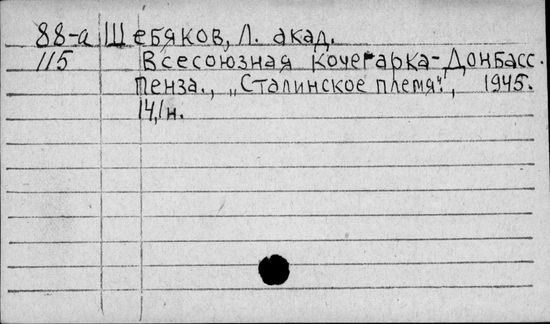 88-а Шебяков, Л. акад.
115 Всесоюзная кочегарка-Донбасс.
Пенза., „Сталинское племя", 1945.
14,1н.